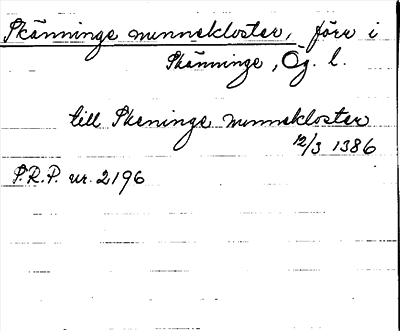 Skänninge nunnekloster, förr i
Skänninge, Ög. l.
till Skeninge nunnekloster
12/3 1386
P.R.P. nr. 2196